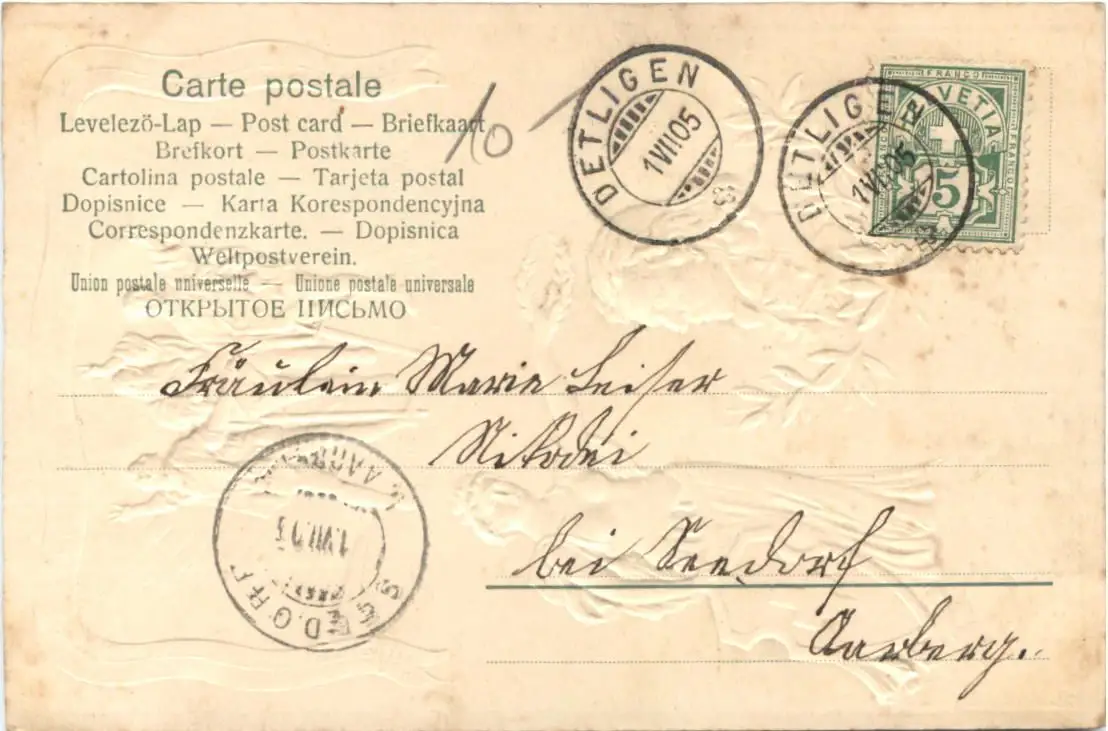 Carte postale
Levelező-Lap — Post card — Briefkaart
Brefkort — Postkarte
Cartolina postale — Tarjeta postal
Dopisnice — Karta Korespondencyjna
Correspondenzkarte. — Dopisnica
Weltpostverein.
Union postale universelle — Unione postale universale
ОТКРЫТОЕ ПИСЬМО
10
DETLIGEN
1 VII 05
DETLIGEN
1 VII 05
FRANCO
HELVETIA
FRANCO
5
Fräulein Marie Leiser
bei Seedorf
Aarberg.
SEEDORF
1.VII.05